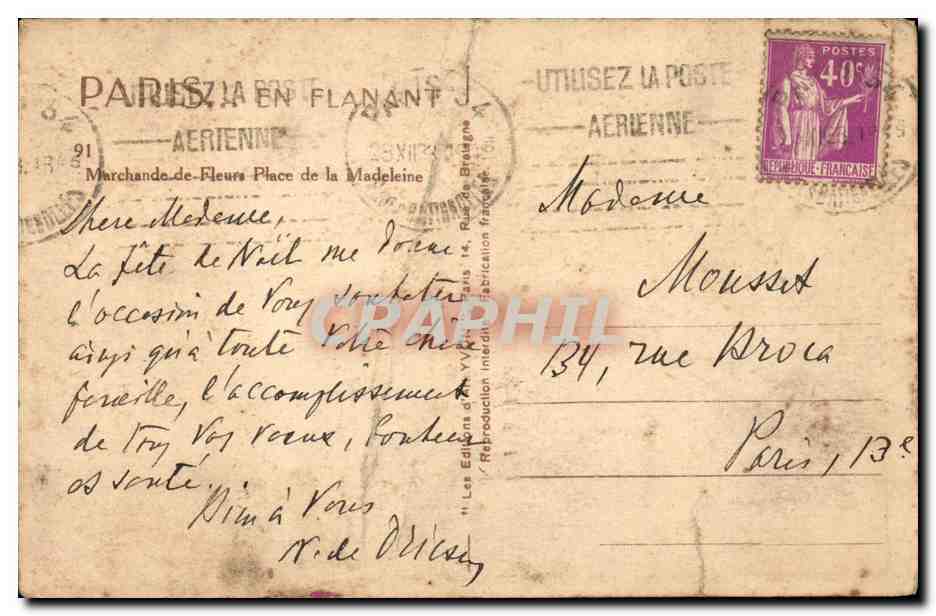 PARIS... EN FLANANT
UTILISEZ LA POSTE
AERIENNE
UTILISEZ LA POSTE
AERIENNE
POSTES
40c
REPUBLIQUE-FRANÇAISE
91
Marchande de Fleurs Place de la Madeleine
Chère Madame,
La fête de Noël me donne
l'occasion de vous souhaiter
ainsi qu'à toute votre chère
famille, l'accomplissement
de tous vos voeux, bonheur
et santé.
Bien à vous
N. de
Madame
Mousset
134, rue Broca
Paris, 13e
" Les Editions d'Art YVON Paris 14, Rue de Bretagne
Reproduction Interdite Fabrication française
CPAPHIL